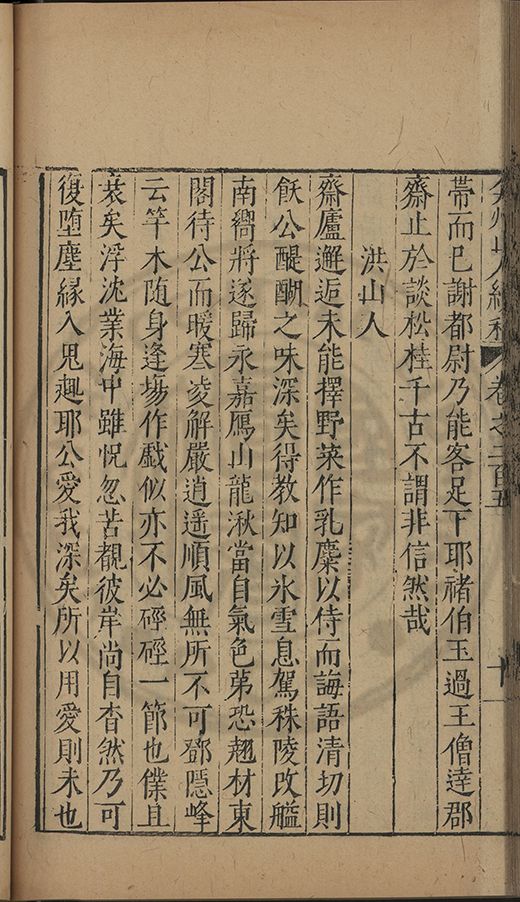 弇州山人續稿 卷之二百五 十一
帶而已謝都尉乃能客足下耶禇伯玉過王僧達郡
齋止於談松桂千古不謂非信然哉
洪山人
齋廬邂逅未能擇野菜作乳麋以侍而誨語清切則
飫公醍醐之味深矣得教知以氷雪息駕秣陵改艦
南嚮將遂歸永嘉鴈山龍湫當自氣色苐恐翹材東
閣待公而暖寒凌解嚴逍遥順風無所不可鄧隱峰
云竿木随身逢場作戱似亦不必硜硜一節也僕且
衰矣浮沈業海中雖怳忽苦覩彼岸尚自杳然乃可
復堕塵緣入鬼趣耶公愛我深矣所以用愛則未也